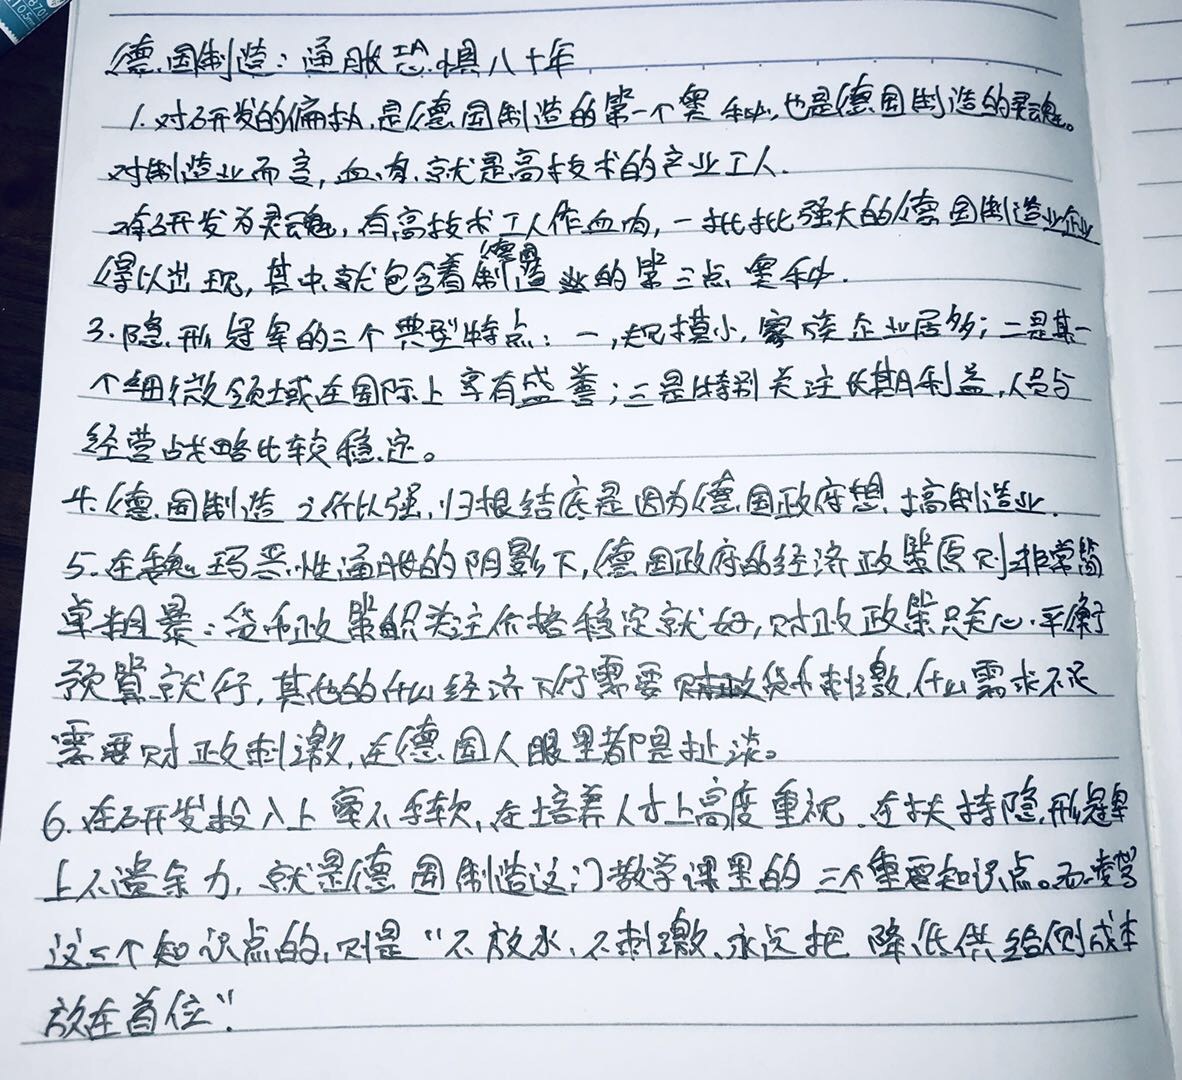 德国制造：通胀恐惧八十年
1.对研发的偏执,是德国制造的第一个奥秘,也是德国制造的灵魂。
对制造业而言,血肉,就是高技术的产业工人.
有研发为灵魂,有高技术工人作血肉,一批批强大的德国制造业企业
得以出现,其中就包含着德国制造业的第三点奥秘.
3.隐形冠军的三个典型特点：一,规模小,家族企业居多;二是某一
个细微领域在国际上享有盛誉;三是特别关注长期利益,人员与
经营战略比较稳定。
4.德国制造之所以强,归根结底是因为德国政府想搞制造业.
5.在魏玛恶性通胀的阴影下,德国政府的经济政策原则非常简
单粗暴：货币政策只关注价格稳定就好,财政政策只关心平衡
预算就行,其他的什么经济下行需要货币刺激,什么需求不足
需要财政刺激,在德国人眼里都是扯淡。
6.在研发投入上毫不手软,在培养人才上高度重视,在扶持隐形冠军
上不遗余力,就是德国制造这门教学课里的三个重要知识点。而凌驾
这三个知识点的,则是“不放水、不刺激、永远把降低供给侧成本
放在首位”.